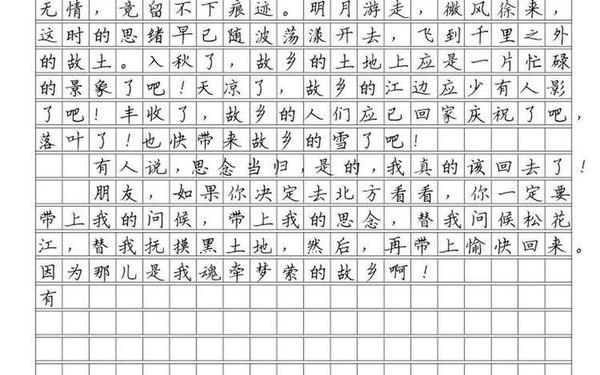 无情，竟留不下痕迹。明月游走，微风徐来，
这时的思绪早已随波荡漾开去，飞到千里之外
的故土。入秋了，故乡的土地上应是一片忙碌
的景象了吧！天凉了，故乡的江边应少有人影
了吧！丰收了，故乡的人们应已回家庆祝了吧，
落叶了！也快带来故乡的雪了吧！
有人说，思念当归，是的，我真的该回去了！
朋友，如果你决定去北方看看，你一定要
带上我的问候，带上我的思念，替我问候松花
江，替我抚摸黑土地，然后，再带上愉快回来。
因为那儿是我魂牵梦萦的故乡啊！
有